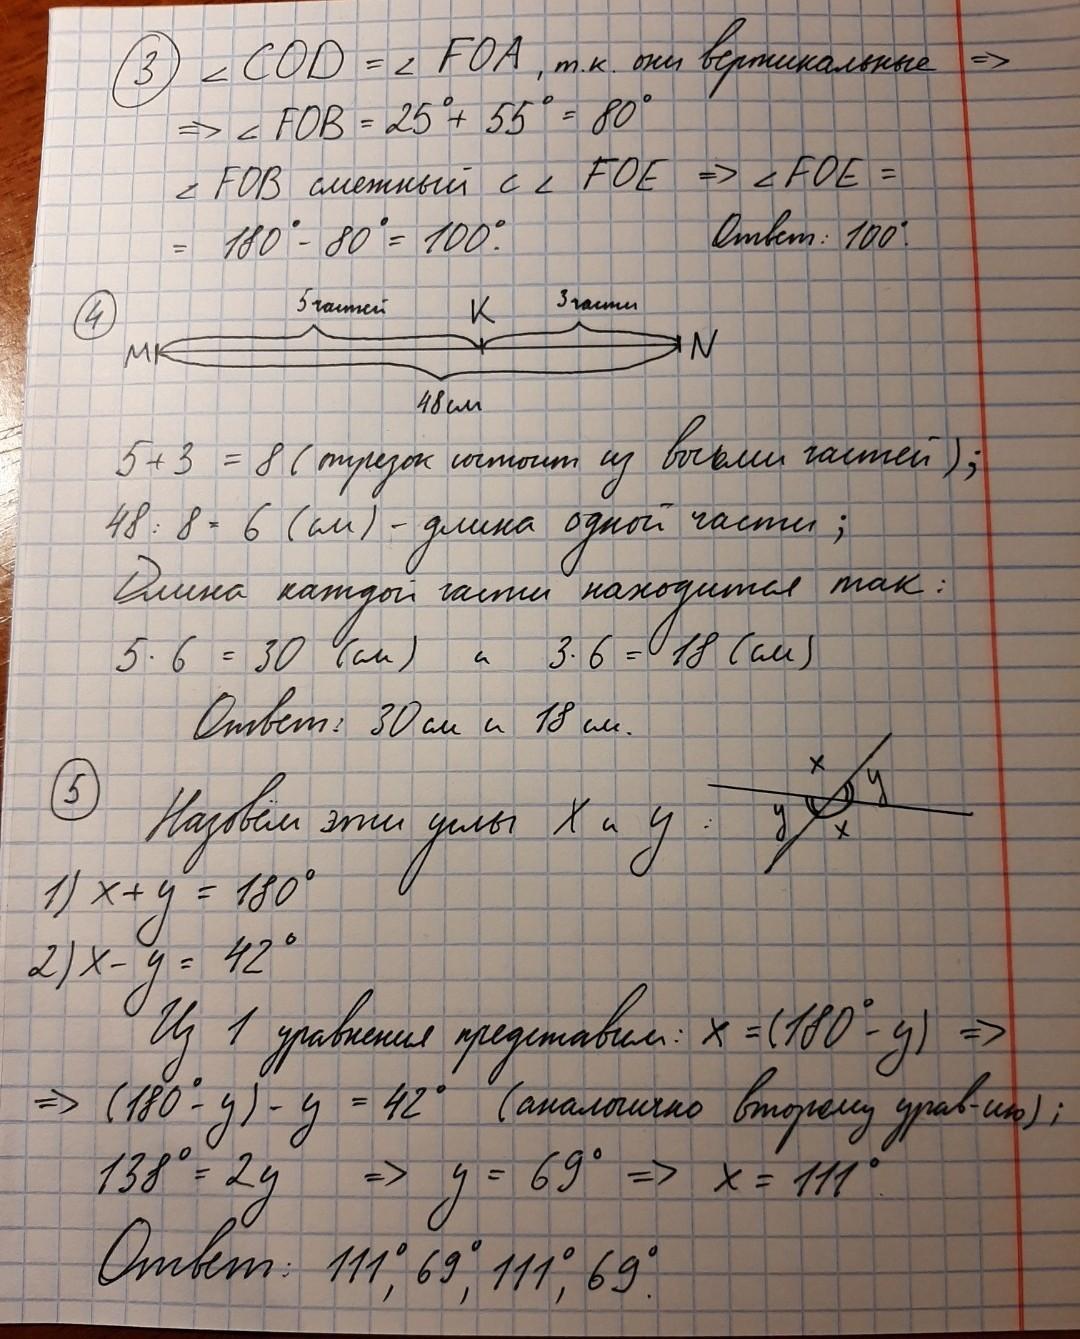 3 ∠COD = ∠ FOA, т.к. они вертикальные =>
=> ∠ FOB = 25° + 55° = 80°
∠ FOB смежный с ∠ FOE => ∠FOE =
= 180° - 80° = 100°. Ответ: 100°.
4 5 частей K 3 части
M N
48 см
5 + 3 = 8 (отрезок состоит из восьми частей);
48 : 8 = 6 (см) - длина одной части;
Длина каждой части находится так:
5 · 6 = 30 (см) и 3 · 6 = 18 (см)
Ответ: 30 см и 18 см.
5 Назовём эти углы x и y :
x y
y x
1) x + y = 180°
2) x - y = 42°
Из 1 уравнения представим: x = (180° - y) =>
=> (180° - y) - y = 42° (аналогично второму урав-ию);
138° = 2y => y = 69° => x = 111°.
Ответ: 111°, 69°, 111°, 69°.